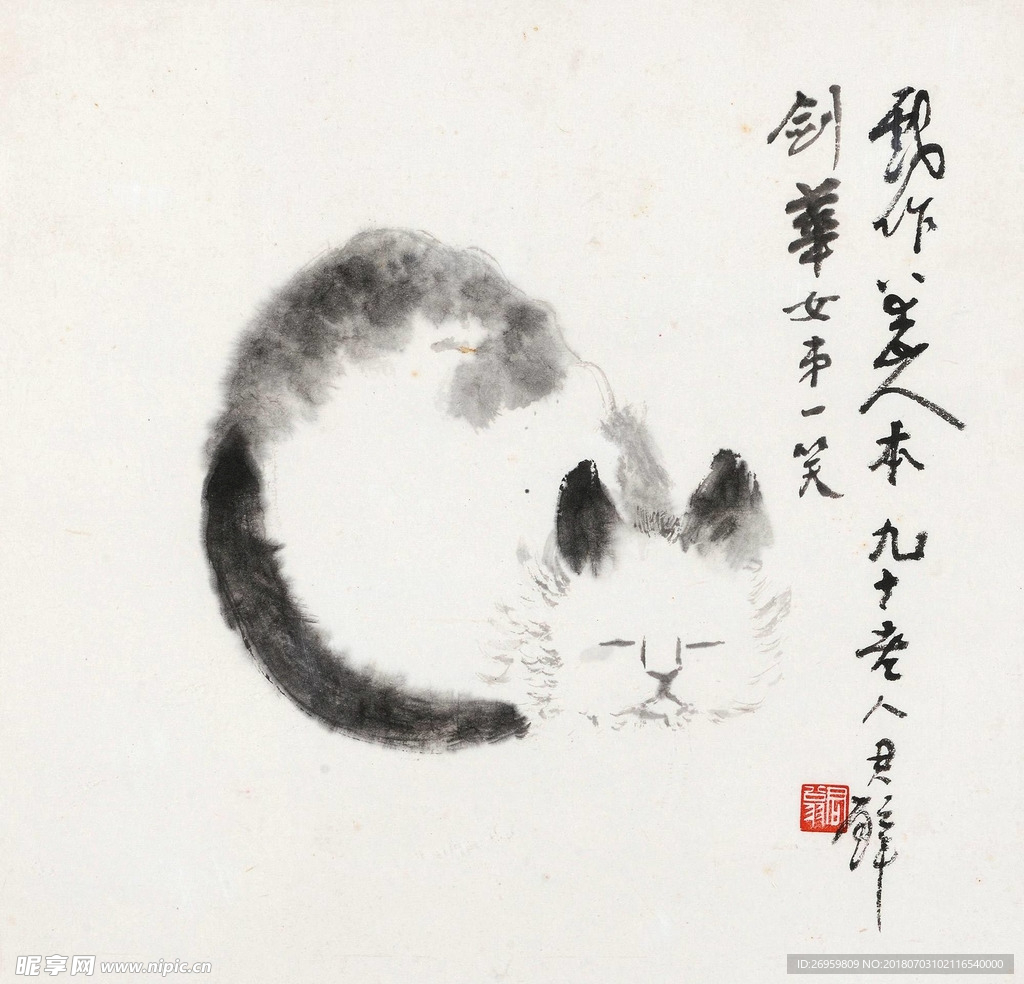 戲作八大山人本 九十老人君璧
劍華女弟一笑
君翁
昵享网 www.nipic.cn
ID:26959809 NO:20180703102116540000